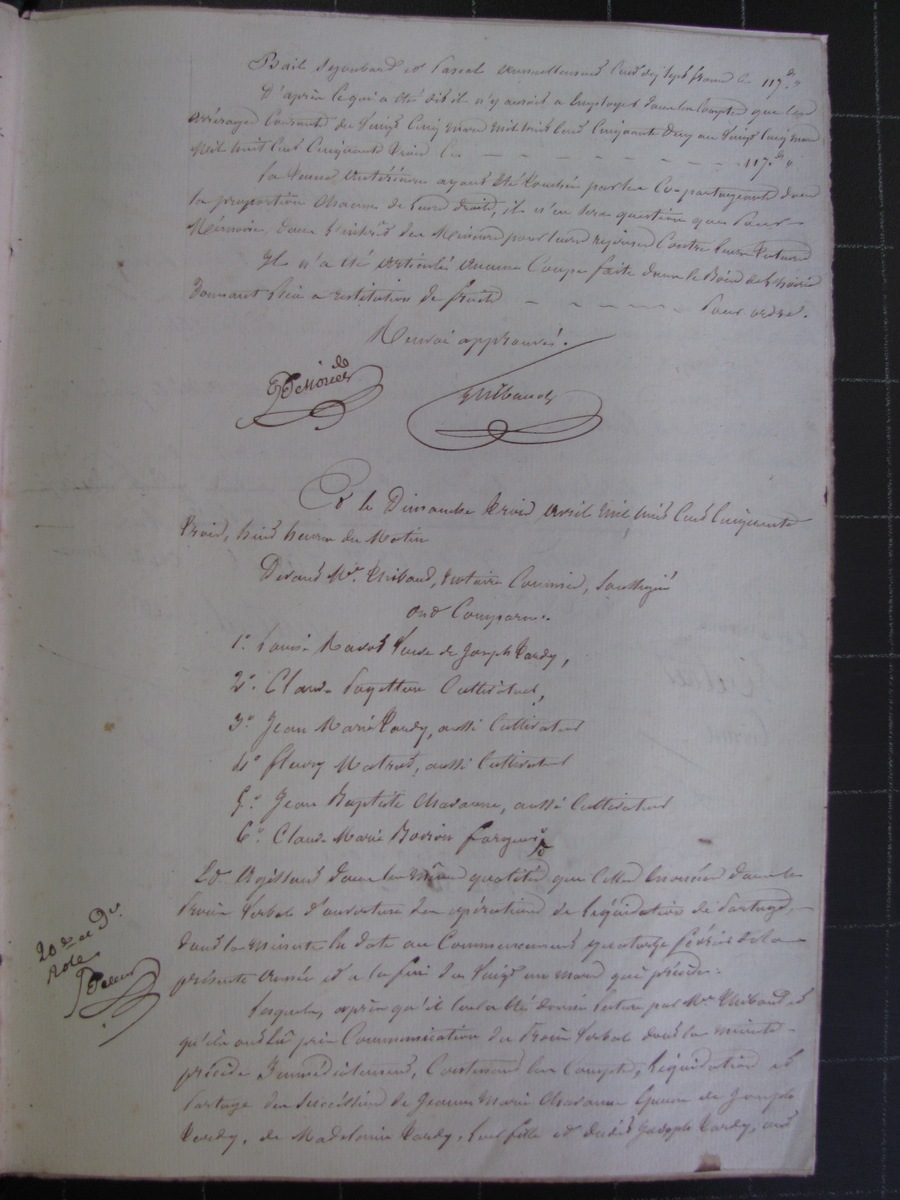 Bail Seynband et Pascal annuellement cent dix sept francs ci 117.f "
D'après ce qui a été dit il n'y aurait à employer dans le compte que les
arrérages courants du vingt cinq mars mil huit cent cinquante deux au vingt cinq mars
mil huit cent cinquante trois ci 117.f "
les termes antérieurs ayant été touchés par les co-partageants dans
la proportion chacun de leurs droits, il n'en sera question que pour
Mémoire, dans l'intérêt des Mineurs pour leurs reprises contre leurs tuteurs
Il n'a été articulé aucune coupe faite dans le Bois de l'hoirie
donnant lieu à restitution de fruits Pour ordre.
Renvoi approuvé.
Thibaud
Et le Dimanche trois avril mil huit cent cinquante
trois, huit heures du Matin
Devant Me. Thibaud, notaire commis, soussigné
ont Comparu.
1o. Louise Ravot Veuve de Joseph Tardy,
2o. Claude Payetton Cultivateur,
3o. Jean Marie Tardy, aussi Cultivateur
4o. fleury Matrat, aussi Cultivateur
5o. Jean Baptiste Chavanne, aussi Cultivateur
6o. Claude Marie Boiron fargeur
Et Agissant dans les même qualités que celles énoncées dans le
Procès Verbal d'ouverture des opérations de liquidation et partage,
dont la minute la date au commencement quatorze février de la
présente année et à la fin du vingt un mars qui précède.
20e et Der.
Role
Lesquels, après qu'il leur a été donné lecture par Me. Thibaud et
qu'ils ont eu pris Communication du Procès Verbal dont la minute
précède Immédiatement, Contenant les Comptes, liquidation et
Partage des Succession de Jeanne Marie Chavanne épouse de Joseph
Tardy, de Madelaine Tardy, leur fille et dudit Joseph Tardy, ont